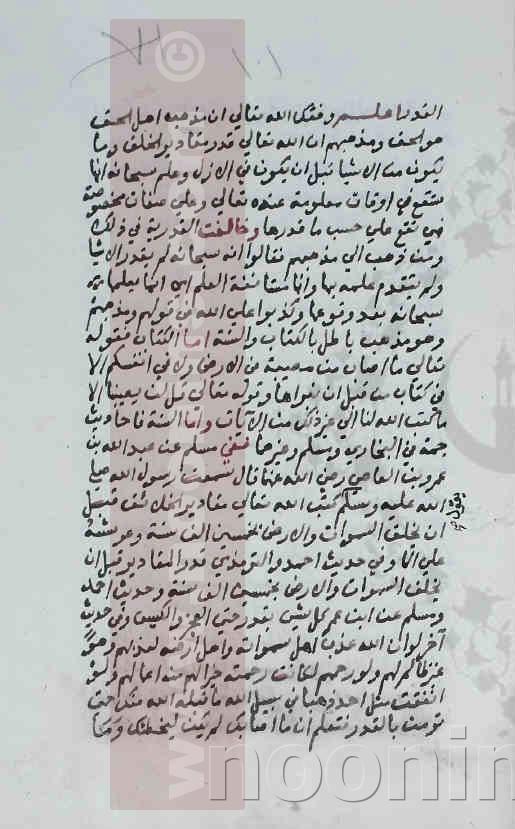 القدر اعلم وفقك الله تعالى ان مذهب اهل الحق
هو الحق ومذهبهم ان الله تعالى قدر مقادير الخلق وما
يكون من الاشيا قبل ان يكون في الازل وعلم سبحانه انها
ستقع في اوقات معلومة عنده تعالى وعلي صفات مخصوصة
فهي تقع علي حسب ما قدرها وخالفت القدرية في ذلك
ومن ذهب الي مذهبهم فقالوا انه سبحانه لم يقدر الاشيا
ولم يتقدم علمه بها وانها مستانفة العلم اي انما يعلمها
سبحانه بعد وقوعها وكذبوا علي الله في قولهم ومذهبهم
وهو مذهب باطل بالكتاب والسنة اما الكتاب فقوله
تعالى ما اصاب من مصيبة في الارض ولا في انفسكم الا
في كتاب من قبل ان نبراها وقوله تعالى قل لن يصيبنا الا
ما كتب الله لنا الي غير ذلك من الايات واما السنة فاحاديث
جمة في البخاري ومسلم وغيرهما ففي مسلم عن عبد الله بن
عمرو بن العاصي رضي الله عنهما قال سمعت رسول الله صلي
الله عليه وسلم كتب الله تعالى مقادير الخلائق قبل
يقول صح
ان يخلق السموات والارض بخمسين الف سنة وعرشه
علي الما وفي حديث احمد والترمذي قدر المقادير قبل ان
يخلق السموات والارض بخمسين الف سنة وحديث احمد
ومسلم عن ابن عمر كل شي بقدر حتي العجز والكيس وفي حديث
آخر لو ان الله عذب اهل سمواته واهل ارضه لعذبهم وهو
غير ظالم لهم ولو رحمهم لكانت رحمته خيرا لهم من اعمالهم ولو
انفقت مثل احد ذهبا في سبيل الله ما قبله الله منك حتي
تومن بالقدر فتعلم ان ما اصابك لم يكن ليخطئك وما
noonin
w
©